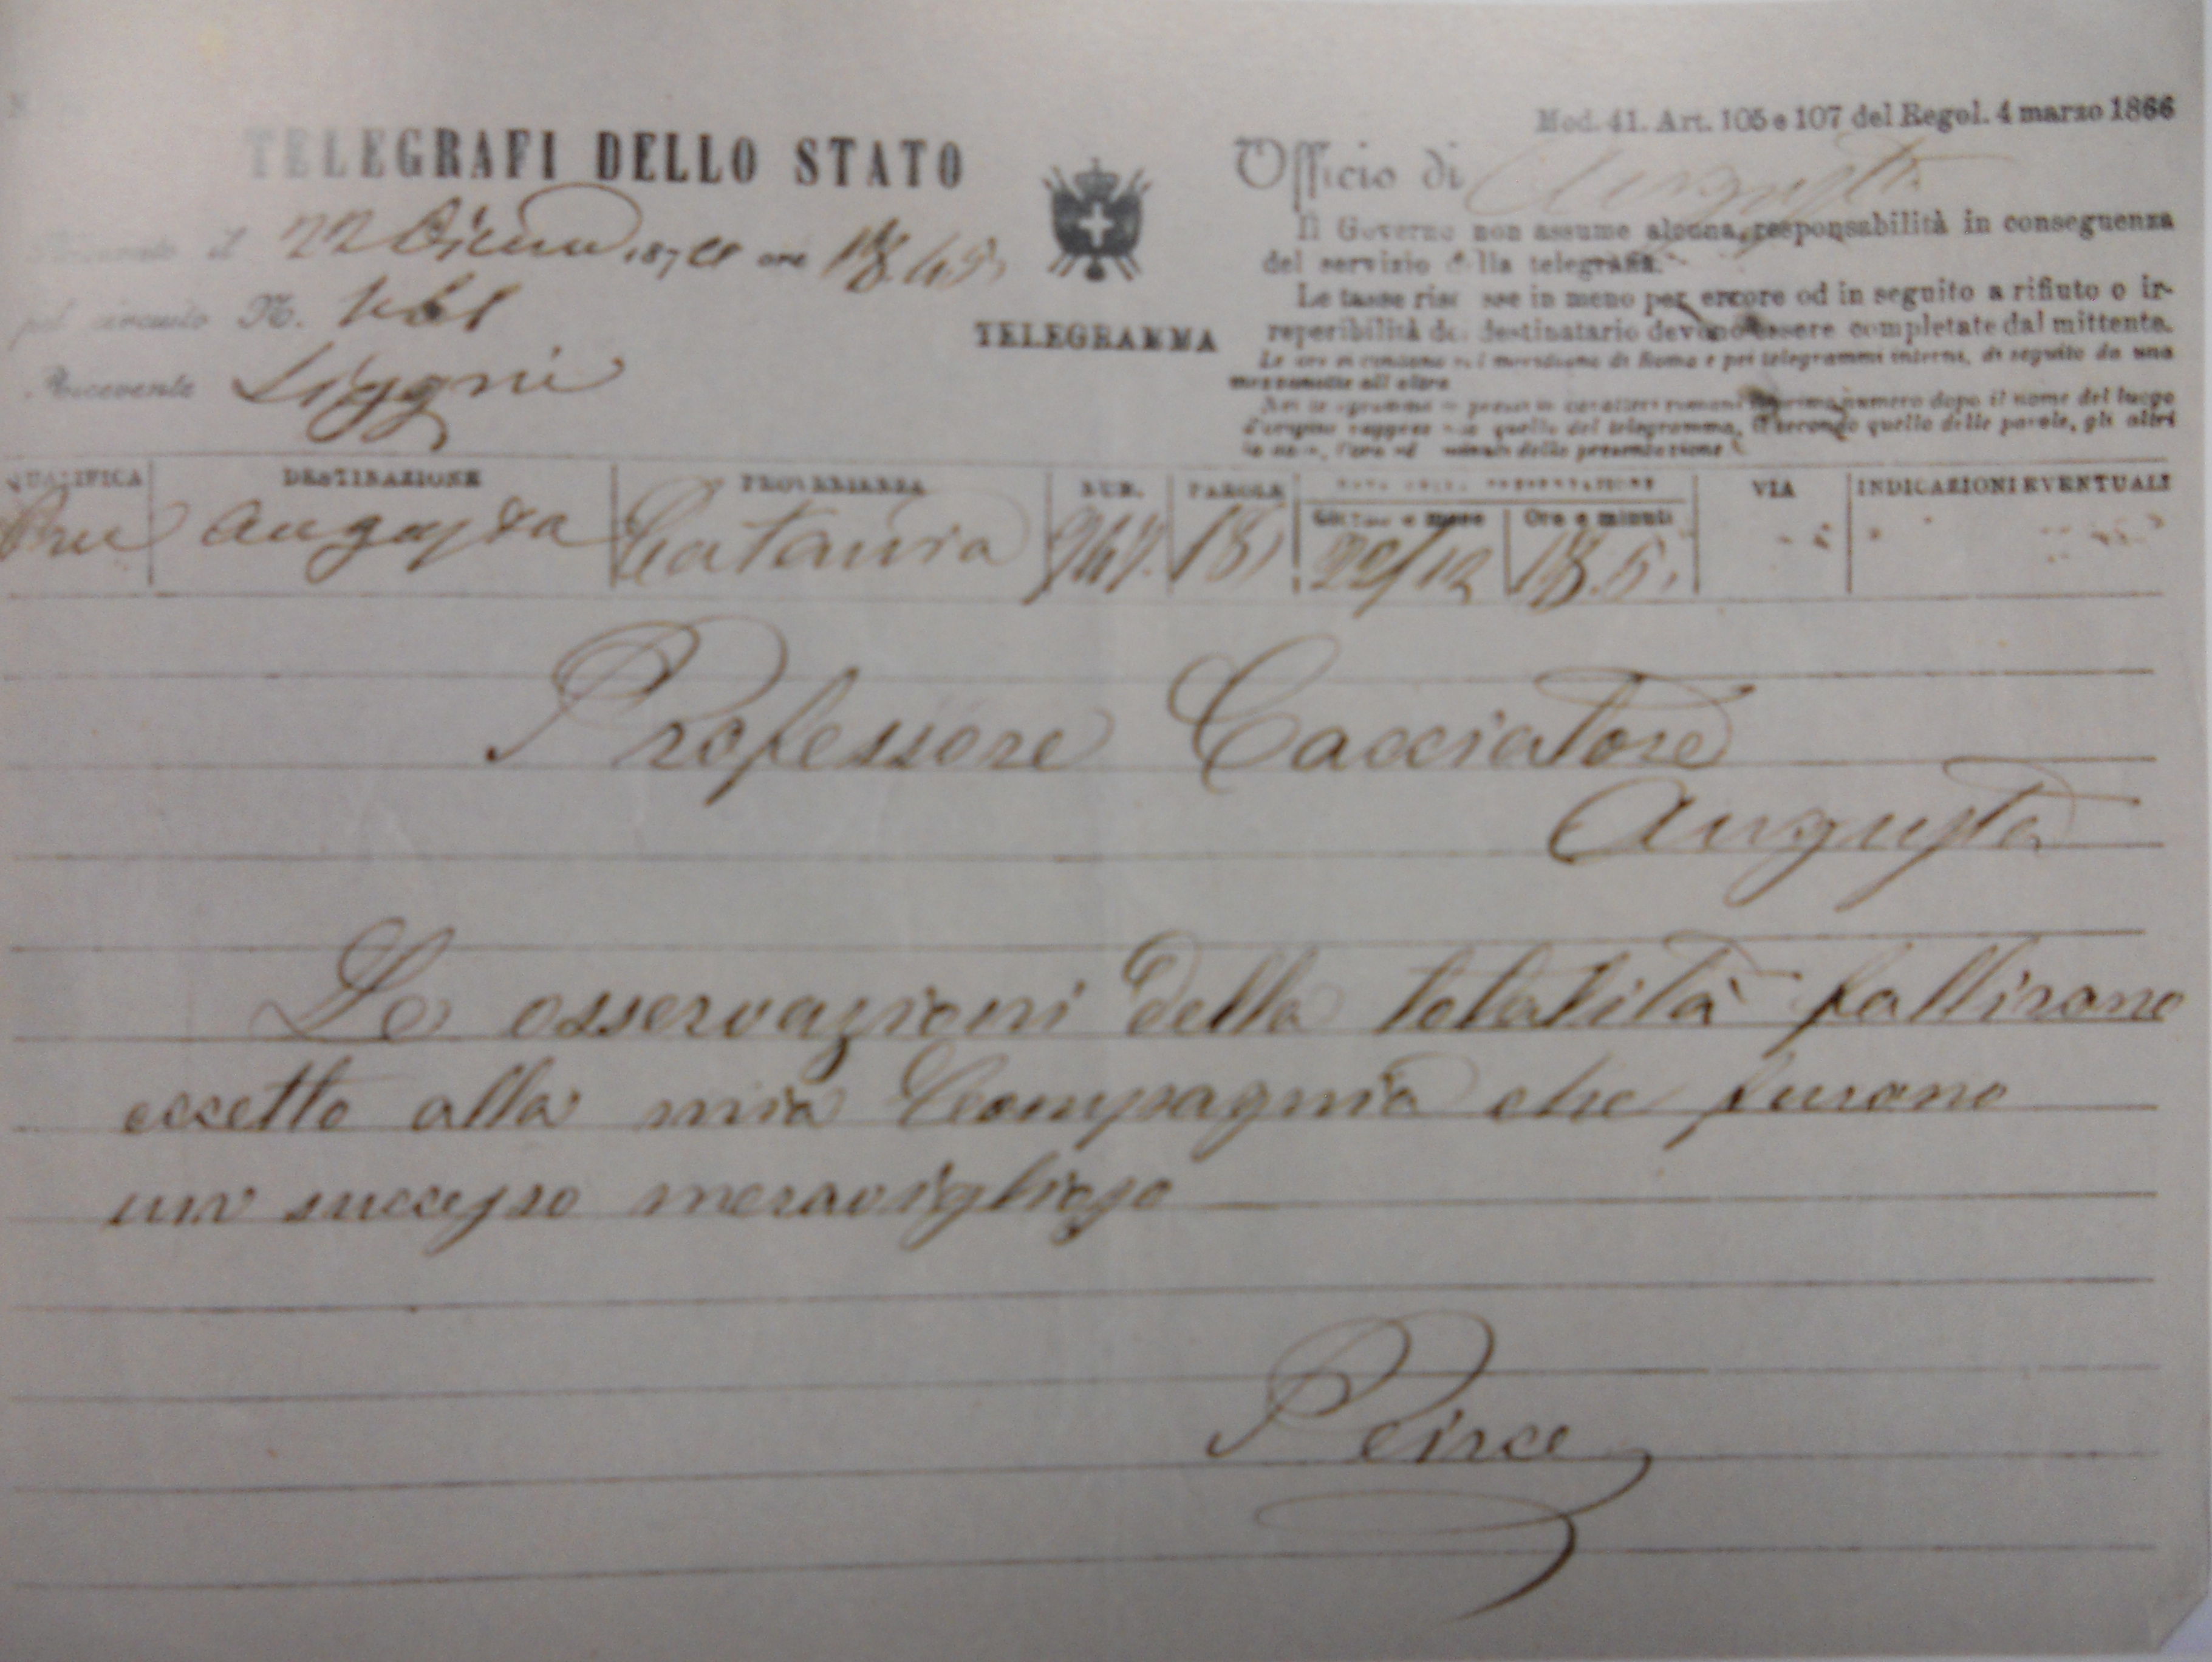 Mod. 41. Art. 105 e 107 del Regol. 4 marzo 1866
TELEGRAFI DELLO STATO
Ufficio di Augusta
il 22 1870 ore 18.45
pel circuito N.
Ricevente
TELEGRAMMA
Il Governo non assume alcuna responsabilità in conseguenza
del servizio della telegrafia.
Le tasse riscosse in meno per errore od in seguito a rifiuto o ir-
reperibilità del destinatario devono essere completate dal mittente.
Le ore si contano sul meridiano di Roma e pei telegrammi interni, di seguito da una
mezzanotte all'altra
Nei telegrammi in caratteri romani il primo numero dopo il nome del luogo
d'origine rappresenta quello del telegramma, il secondo quello delle parole, gli altri
la data, l'ora ed i minuti della presentazione
QUALIFICA DESTINAZIONE PROVENIENZA NUM. PAROLE VIA INDICAZIONI EVENTUALI
Giorno e mese Ore e minuti
Augusta Catania 18 22/12 18.5
Professore Cacciatore
Augusta
Le osservazioni della totalità fallirono
eccetto alla mia Compagnia che furono
un successo meraviglioso
Peirce